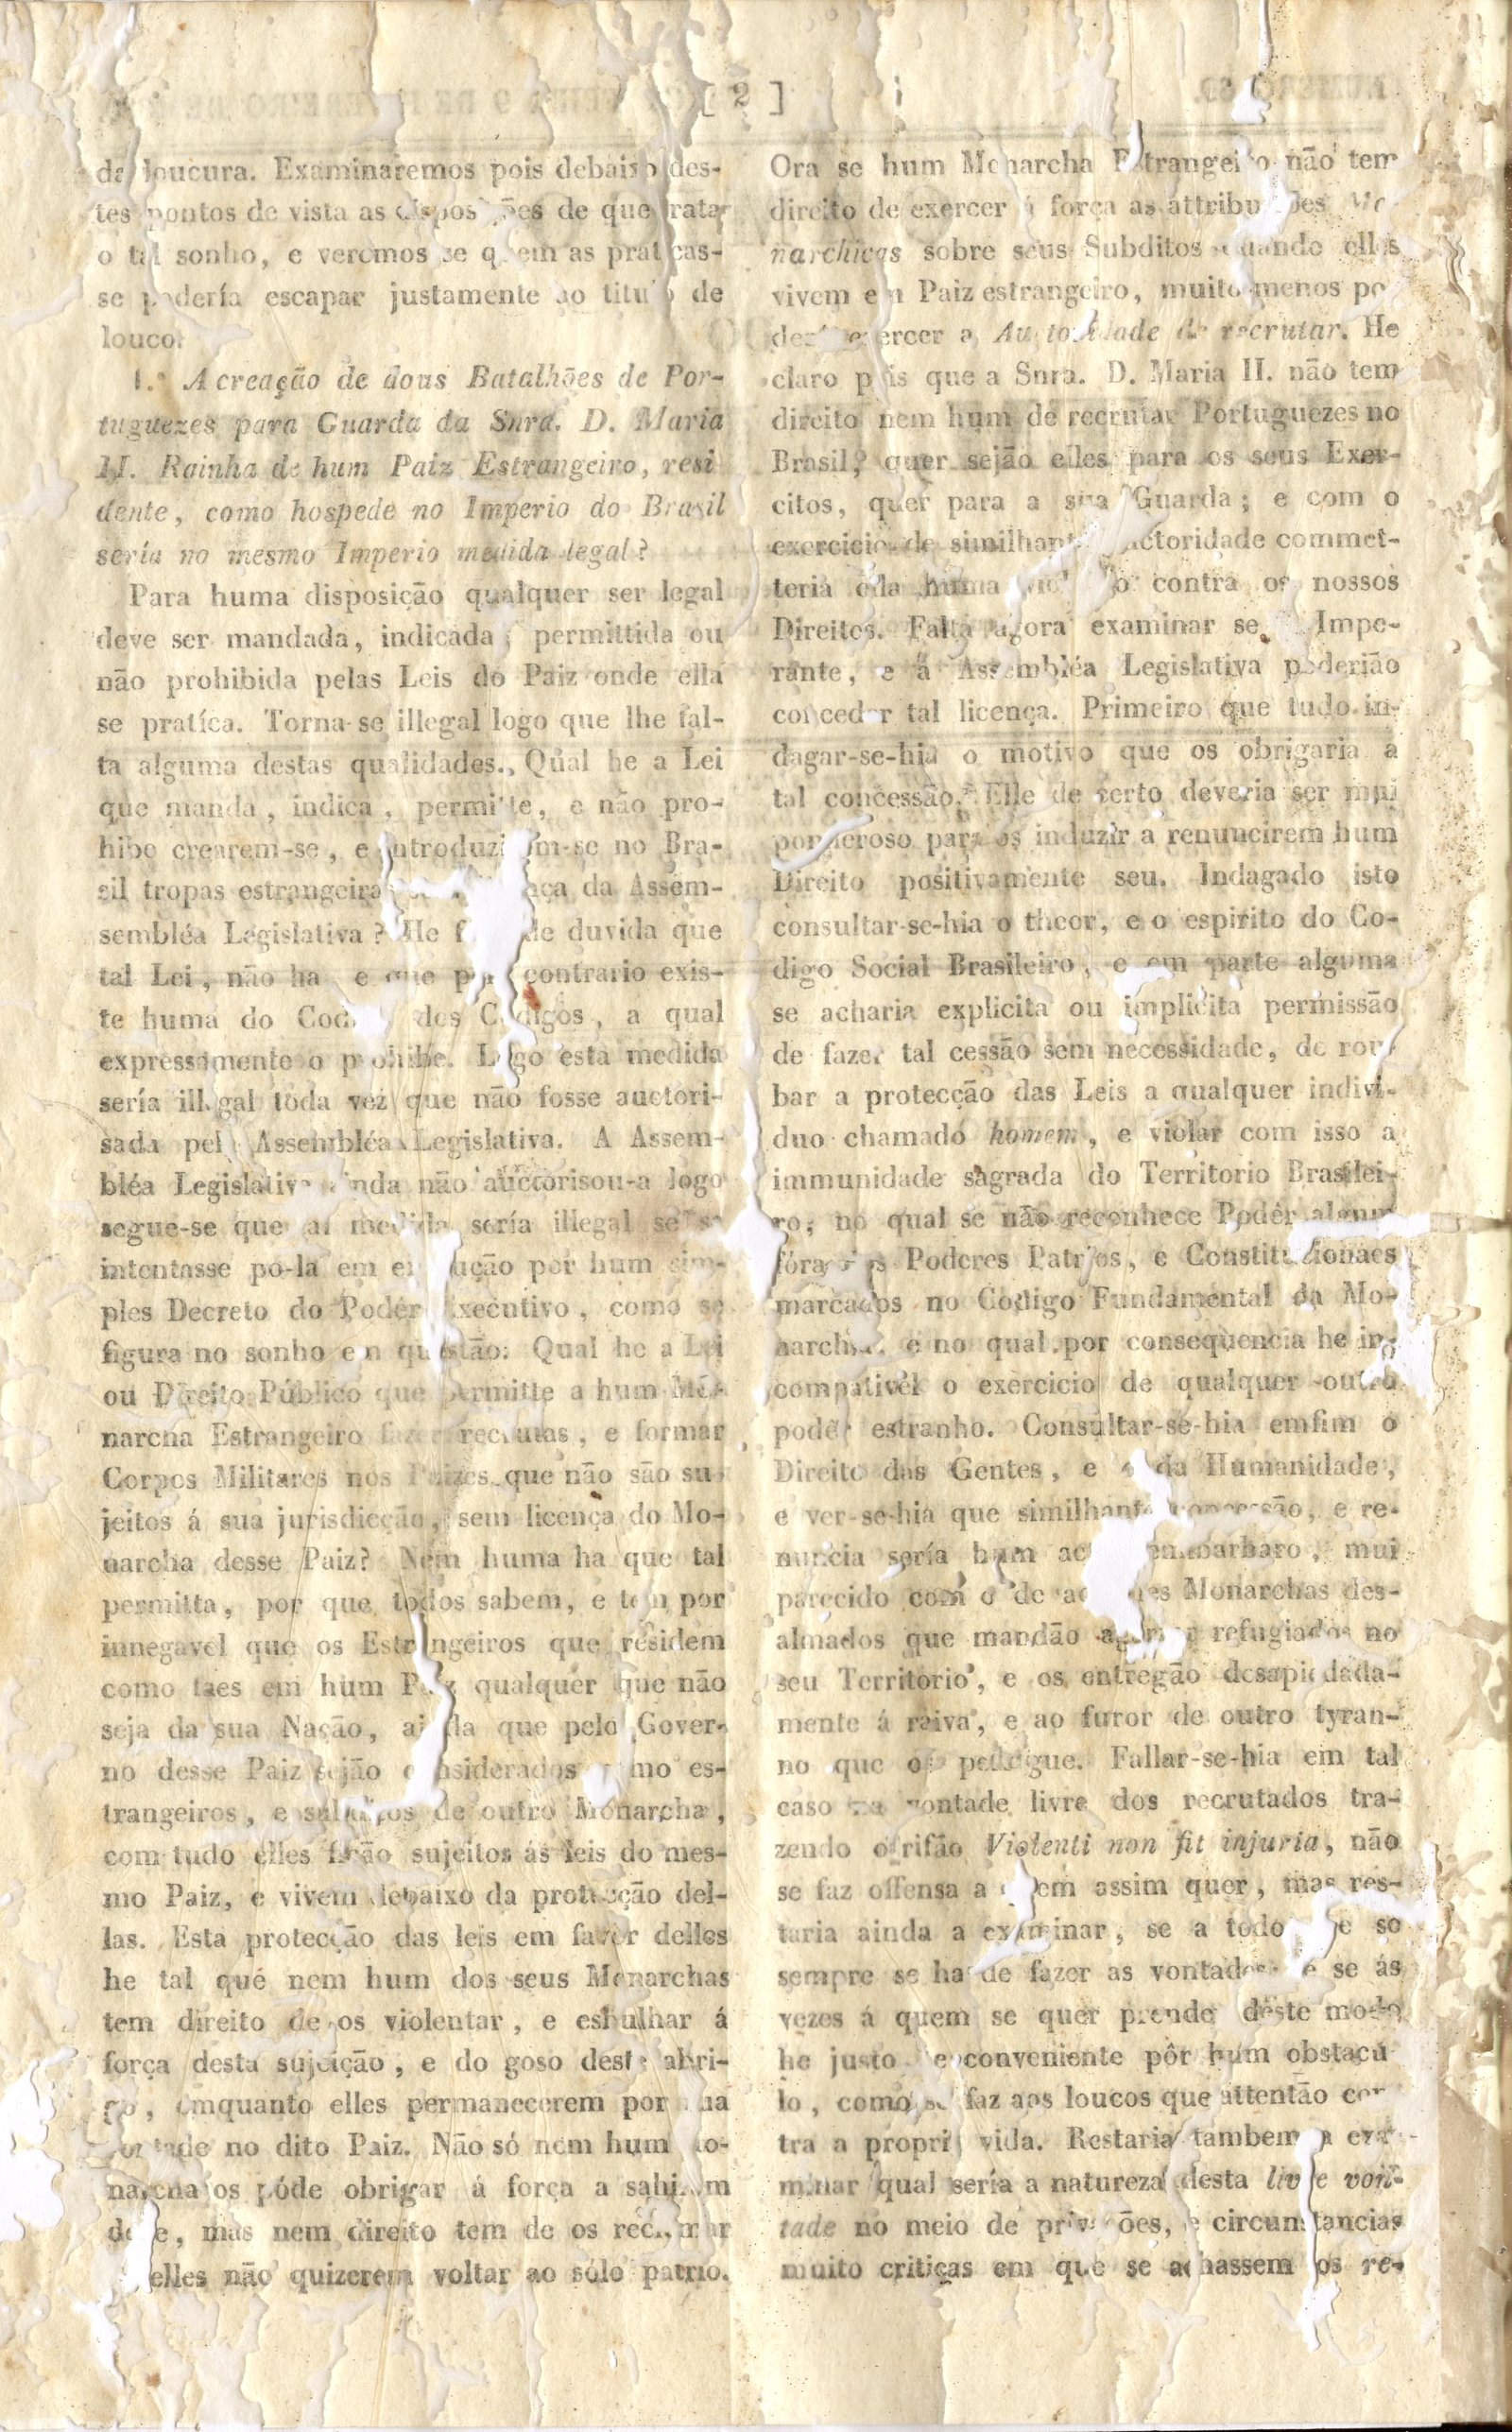 [ 2 ]
da loucura. Examinaremos pois debaixo des-
tes pontos de vista as disposições de que trata
o tal sonho, e veremos se quem as praticas-
se podería escapar justamente ao titulo de
louco.
1.º A creação de dous Batalhões de Por-
tuguezes para Guarda da Snra. D. Maria
II. Rainha de hum Paiz Estrangeiro, resi
dente, como hospede no Imperio do Brasil
sería no mesmo Imperio medida legal?
Para huma disposição qualquer ser legal
deve ser mandada, indicada, permittida ou
não prohibida pelas Leis do Paiz onde ella
se pratíca. Torna-se illegal logo que lhe fal-
ta alguma destas qualidades. Qual he a Lei
que manda, indica, permitte, e não pro-
hibe crearem-se, e introduzirem-se no Bra-
sil tropas estrangeiras ... da Assem-
sembléa Legislativa? He fóra de duvida que
tal Lei, não ha e que pelo contrario exis-
te huma do Codigo dos Codigos, a qual
expressamente o prohibe. Logo esta medida
sería illegal toda vez que não fosse auctori-
sada pela Assembléa Legislativa. A Assem-
bléa Legislativa ainda não auctorisou-a logo
segue-se que tal medida sería illegal se se
intentasse po-la em execução por hum sim-
ples Decreto do Podér Executivo, como se
figura no sonho em questão: Qual he a Lei
ou Direito Público que permitte a hum Mo-
narcha Estrangeiro fazer recrutas, e formar
Corpos Militares nos Paizes que não são su-
jeitos á sua jurisdicção, sem licença do Mo-
narcha desse Paiz? Nem huma ha que tal
permitta, por que todos sabem, e tem por
innegavel que os Estrangeiros que residem
como taes em hum Paiz qualquér que não
seja da sua Nação, ainda que pelo Gover-
no desse Paiz sejão considerados como es-
trangeiros, e subditos de outro Monarcha,
com tudo elles ficão sujeitos ás leis do mes-
mo Paiz, e vivem debaixo da protecção del-
las. Esta protecção das leis em favor delles
he tal que nem hum dos seus Monarchas
tem direito de os violentar, e esbulhar á
força desta sujeição, e do goso deste abri-
go, emquanto elles permanecerem por sua
vontade no dito Paiz. Não só nem hum Mo-
narcha os póde obrigar á força a sahirem
delle, mas nem direito tem de os reclamar
elles não quizerem voltar ao sólo patrio.
Ora se hum Monarcha Estrangeiro não tem
direito de exercer á força as attribuições Mo-
narchicas sobre seus Subditos quando elles
vivem em Paiz estrangeiro, muito menos po
derá exercer a Auctoridade de recrutar. He
claro pois que a Snra. D. Maria II. não tem
direito nem hum de recrutar Portuguezes no
Brasil, quer sejão elles para os seus Exer-
citos, quer para a sua Guarda; e com o
exercicio de similhante Auctoridade commet-
teria ella huma contra os nossos
Direitos. Falta agora examinar se Impe-
rante, e a Assembléa Legislativa poderião
conceder tal licença. Primeiro que tudo in-
dagar-se-hia o motivo que os obrigaria a
tal concessão. Elle de certo deveria ser mui
ponderoso para os induzir a renuncirem hum
Direito positivamente seu. Indagado isto
consultar-se-hia o theor, e o espirito do Co-
digo Social Brasileiro, e em parte alguma
se acharia explicita ou implicita permissão
de fazer tal cessão sem necessidade, de rou-
bar a protecção das Leis a qualquer indivi-
duo chamado homem, e violar com isso a
immunidade sagrada do Territorio Brasilei-
ro, no qual se não reconhece Podér algum
fóra dos Poderes Patrios, e Constitucionaes
marcados no Codigo Fundamental da Mo-
narchia, e no qual por consequencia he in-
compativel o exercicio de qualquer outro
podér estranho. Consultar-se-hia emfim o
Direito das Gentes, e o da Humanidade,
e ver-se-hia que similhante concessão, e re-
nuncia sería hum acto barbaro, mui
parecido com o de Monarchas des-
almados que mandão refugiados no
seu Territorio, e os entregão desapiedada-
mente á raiva, e ao furor de outro tyran-
no que os persegue. Fallar-se-hia em tal
caso na vontade livre dos recrutados tra-
zendo o rifão Violenti non fit injuria, não
se faz offensa a quem assim quer, mas res-
taria ainda a examinar, se a todo se so
sempre se ha de fazer as vontades e se ás
vezes á quem se quer prender déste modo
he justo e conveniente pôr hum obstacu
lo, como se faz aos loucos que attentão con
tra a propria vida. Restaria tambem a exa-
minar qual sería a natureza desta livre von-
tade no meio de privações, e circumstancias
muito criticas em que se achassem os re-